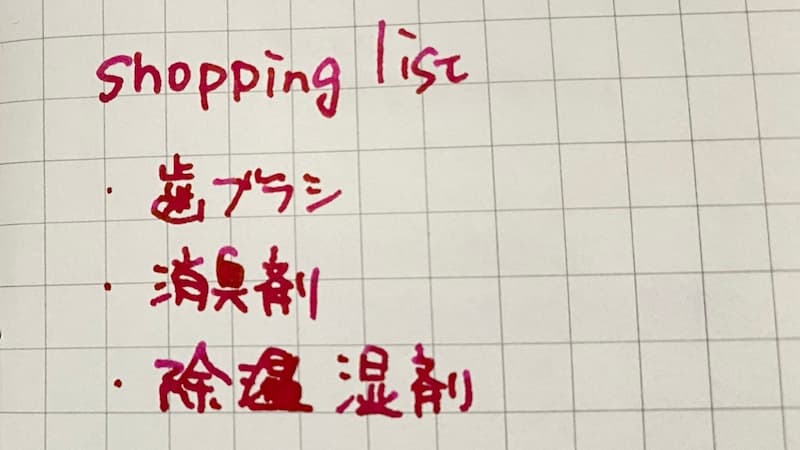 shopping list
・歯ブラシ
・消臭剤
・除湿剤